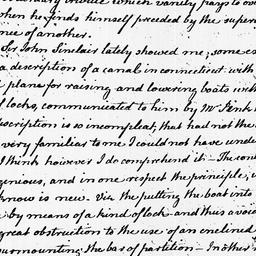 ordinary tribute which vanity pays to
when he finds himself preceded by the super
ne of another.
Sir John Sinclair lately showed me, some es
a description of a canal in connecticut with
plans for raising and lowering boats with
locks, communicated to him by Mr
scription is so incompleat, that had not the
very familiar to me I could not have und
I think however I do comprehend it. The con
genious, and in one respect the principle,
know is new. Viz the putting the boat into
by means of a kind of lock and thus avoid
great obstruction to the use of an enclined
surmounting the bar of partition — In other